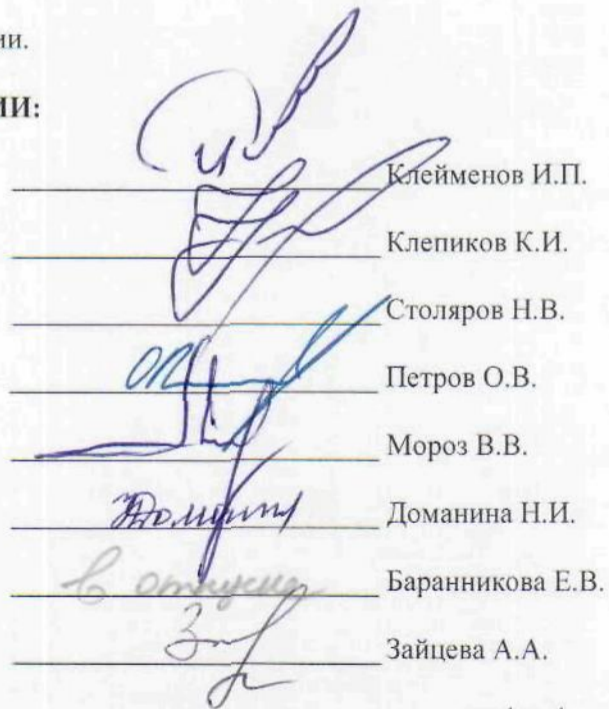 ии.
ИИ:
Клейменов И.П.
Клепиков К.И.
Столяров Н.В.
Петров О.В.
Мороз В.В.
Доманина Н.И.
в отпуске Баранникова Е.В.
Зайцева А.А.